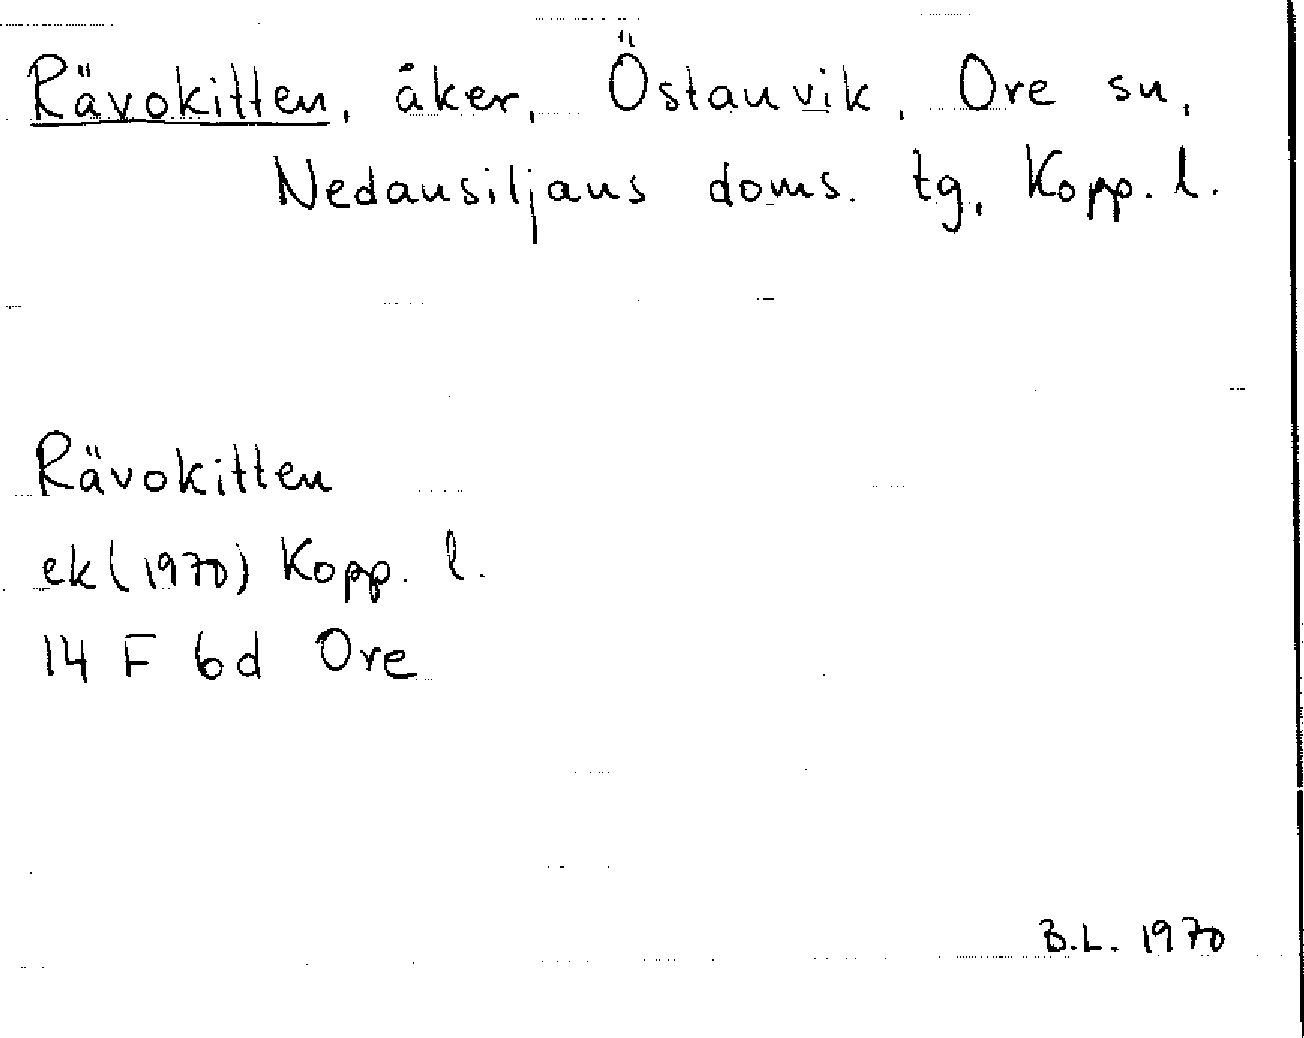 Rävokitten, åker, Östanvik, Ore sn,
Nedansiljans doms. tg, Kopp. l.
Rävokitten
ek (1970) Kopp. l.
14 F 6d Ore
B.L. 1970